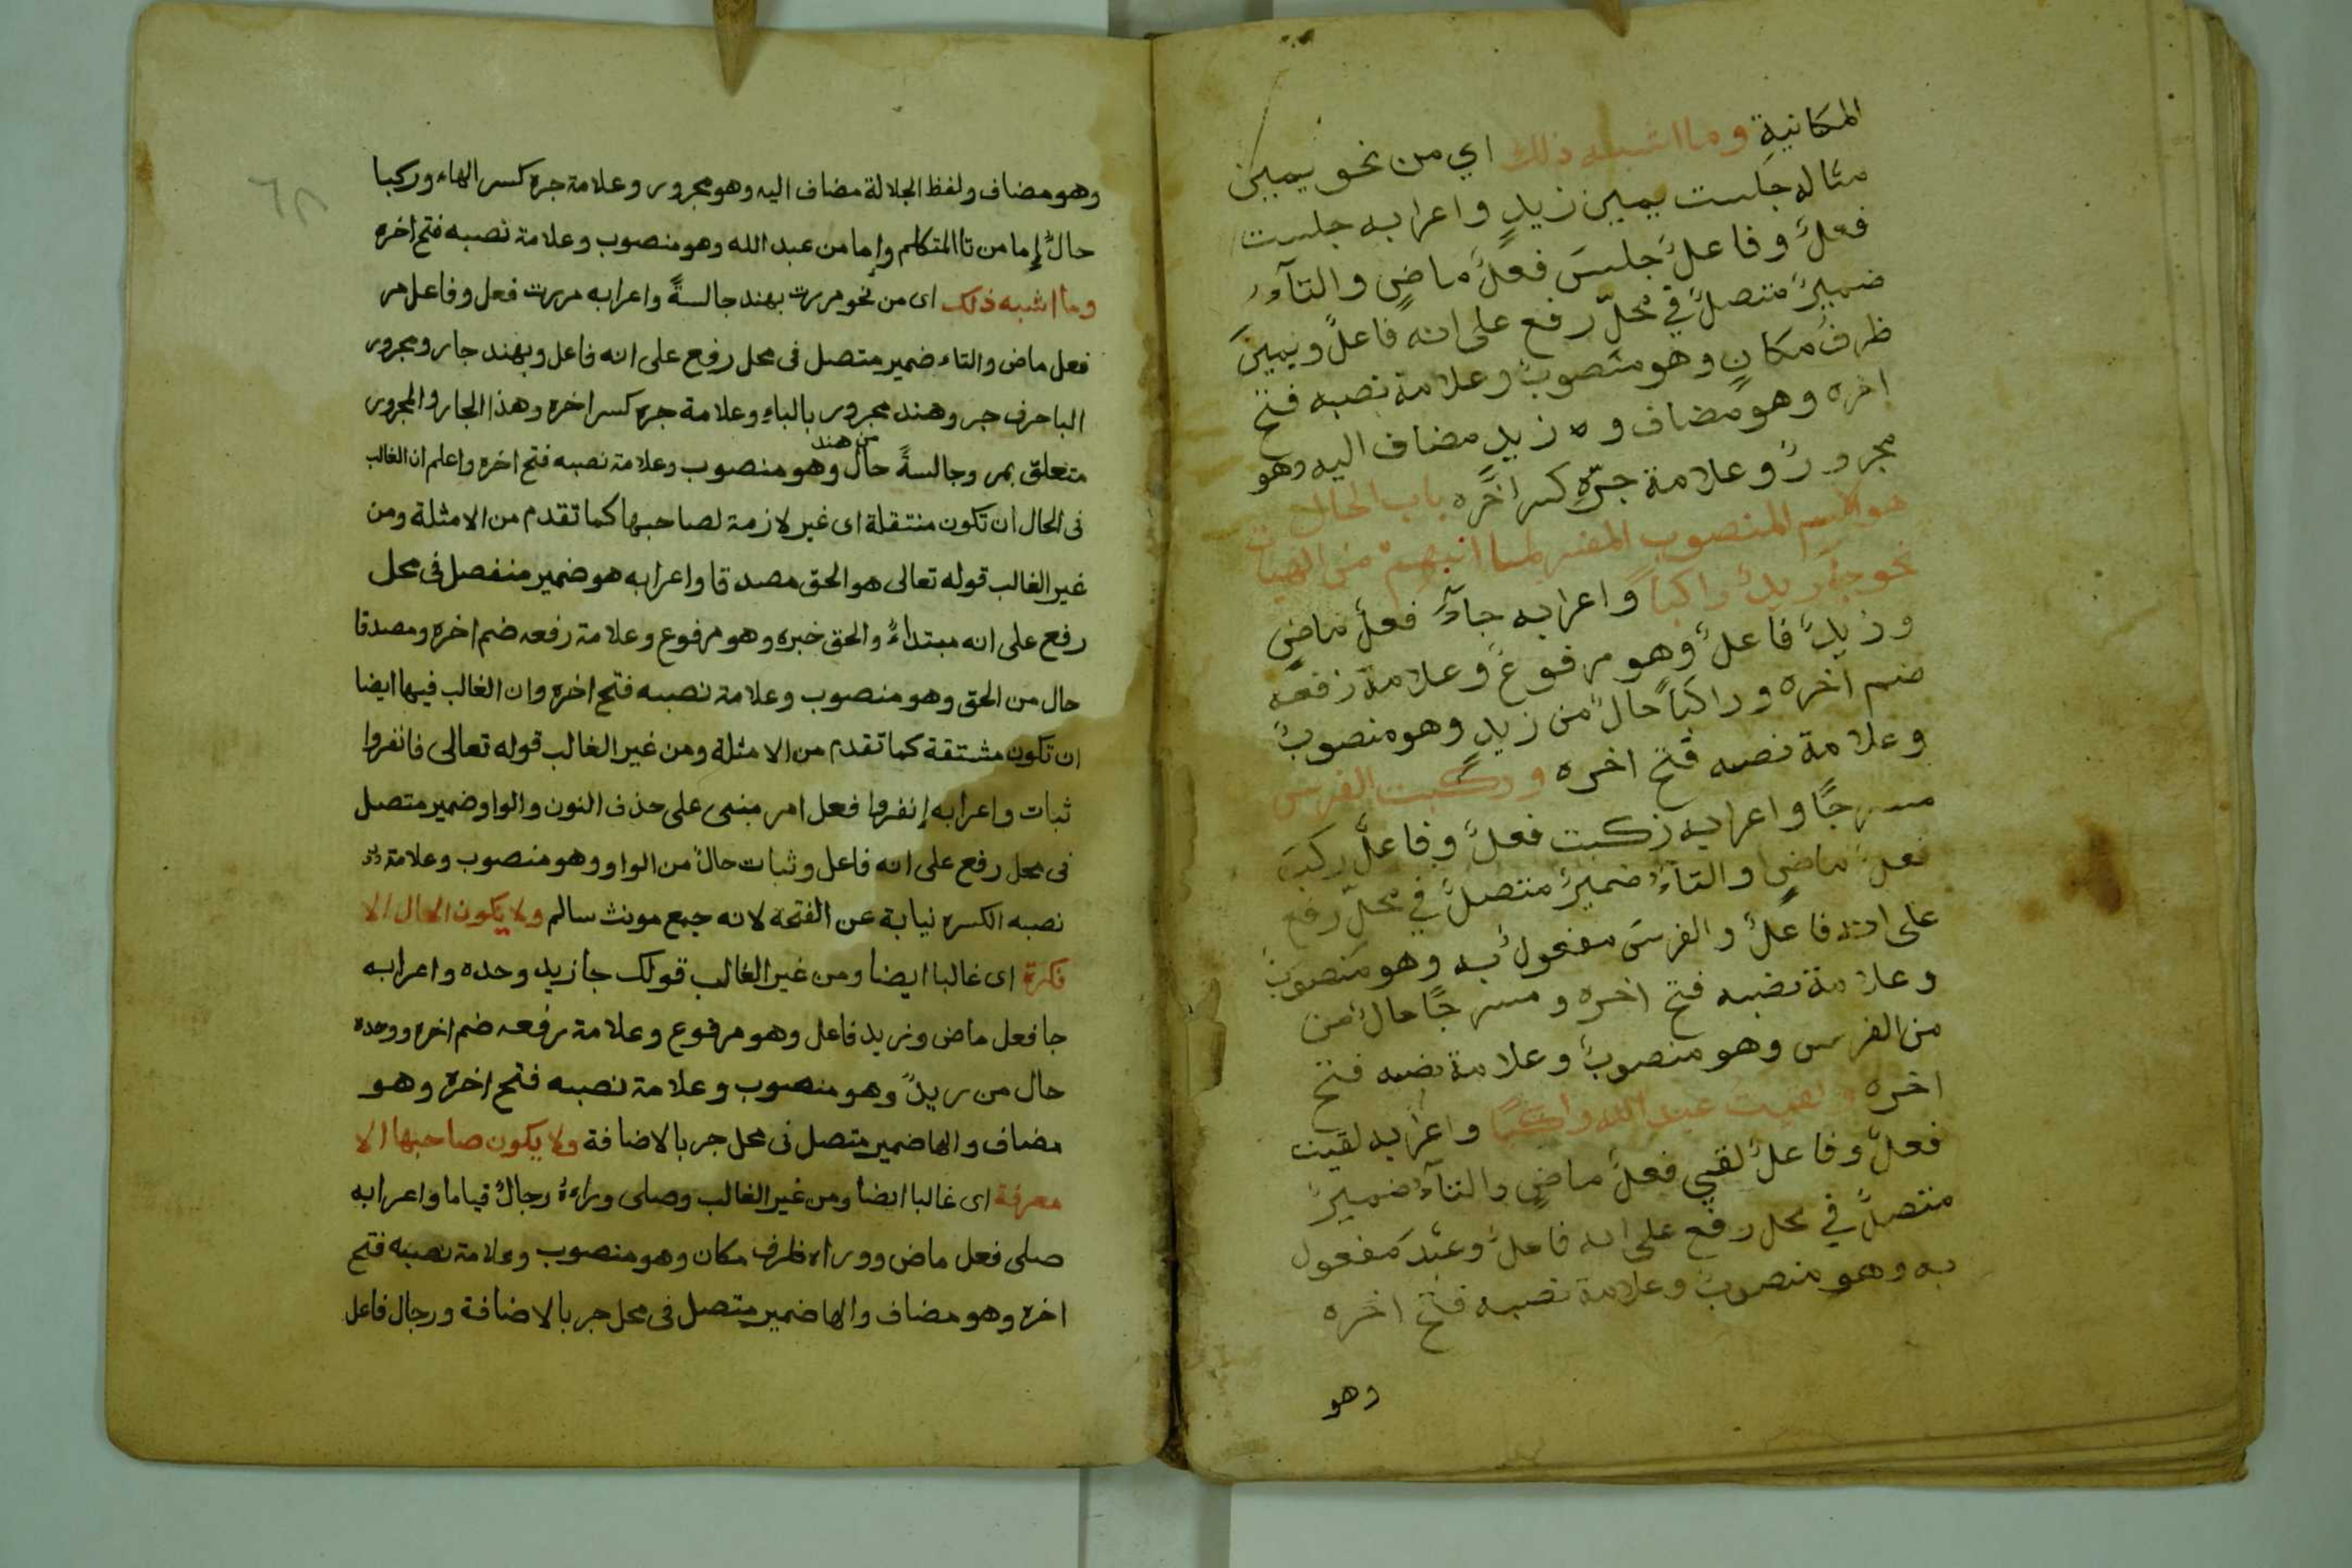 المكانية وما اشبه ذلك اي من نحو يمين
مثاله جلست يمين زيدٍ واعرابه جلست
فعلٌ وفاعلٌ جلسَ فعلٌ ماضٍ والتآءُ
ضميرٌ متصلٌ في محلّ رفع على انه فاعلٌ ويمينَ
ظرفُ مكانٍ وهو منصوبٌ وعلامة نصبه فتح
اخره وهو مضاف و زيدٍ مضاف اليه وهو
مجرورٌ وعلامة جرّهِ كسر اخره باب الحال
هو الاسم المنصوب المفسر لما انبهم من الهيات
نحو جآء زيدٌ راكباً واعرابه جآءَ فعلٌ ماضٍ
وزيدٌ فاعلٌ وهو مرفوعٌ وعلامة رفعه
ضم اخره وراكباً حالٌ من زيدٍ وهو منصوبٌ
وعلامة نصبه فتح اخره وركبت الفرس
مسرجًا واعرابه ركبت فعلٌ وفاعلٌ ركبَ
فعلٌ ماضٍ والتآءُ ضميرٌ متصلٌ في محلّ رفع
على انه فاعلٌ والفرسَ مفعولٌ به وهو منصوبٌ
وعلامة نصبه فتح اخره ومسرجًا حالٌ من
من الفرس وهو منصوبٌ وعلامة نصبه فتح
اخره ولقيت عبد الله راكبًا واعرابه لقيت
فعلٌ وفاعلٌ لقي فعلٌ ماضٍ والتآءُ ضميرٌ
متصلٌ في محل رفع على انه فاعلٌ وعبدَ مفعول
به وهو منصوبٌ وعلامة نصبه فتح اخره
وهو
٦٨
وهو مضاف ولفظ الجلالة مضاف اليه وهو مجرور وعلامة جره كسر الهاء وركبا
حالٌ إما من تا المتكلم وإما من عبد الله وهو منصوب وعلامة نصبه فتح اخره
وما اشبه ذلك اى من نحو مررت بهند جالسةً واعرابه مررت فعل وفاعل مر
فعل ماض والتاء ضمير متصل فى محل رفع على انه فاعل وبهند جار ومجرور
البا حرف جر وهند مجرور بالباءِ وعلامة جره كسر اخره وهذا الجار والمجرور
من هند
متعلق بمر وجالسةً حال وهو منصوب وعلامة نصبه فتح اخره واعلم ان الغالب
فى الحال ان تكون منتقلة اى غير لازمة لصاحبها كما تقدم من الامثلة ومن
غير الغالب قوله تعالى هو الحق مصدقا واعرابه هو ضمير منفصل فى محل
رفع على انه مبتداءٌ والحق خبره وهو مرفوع وعلامة رفعه ضم اخره ومصدقا
حال من الحق وهو منصوب وعلامة نصبه فتح اخره وان الغالب فيها ايضا
ان تكون مشتقة كما تقدم من الامثلة ومن غير الغالب قوله تعالى فانفروا
ثبات واعرابه إنفروا فعل امر مبنى على حذف النون والواو ضمير متصل
فى محل رفع على انه فاعل وثبات حالٌ من الواو وهو منصوب وعلامة
نصبه الكسره نيابة عن الفتحة لانه جمع مونث سالم ولا يكون الحال الا
نكرة اى غالبا ايضا ومن غير الغالب قولك جا زيد وحده واعرابه
جا فعل ماض وزيد فاعل وهو مرفوع وعلامة رفعه ضم اخره ووحده
حال من زيدٍ وهو منصوب وعلامة نصبه فتح اخره وهو
مضاف والها ضمير متصل فى محل جر بالاضافة ولا يكون صاحبها الا
معرفة اى غالبا ايضا ومن غير الغالب وصلى وراءهُ رجالٌ قياما واعرابه
صلى فعل ماض ووراه ظرف مكان وهو منصوب وعلامة نصبه فتح
اخره وهو مضاف والها ضمير متصل فى محل جر بالاضافة ورجال فاعل